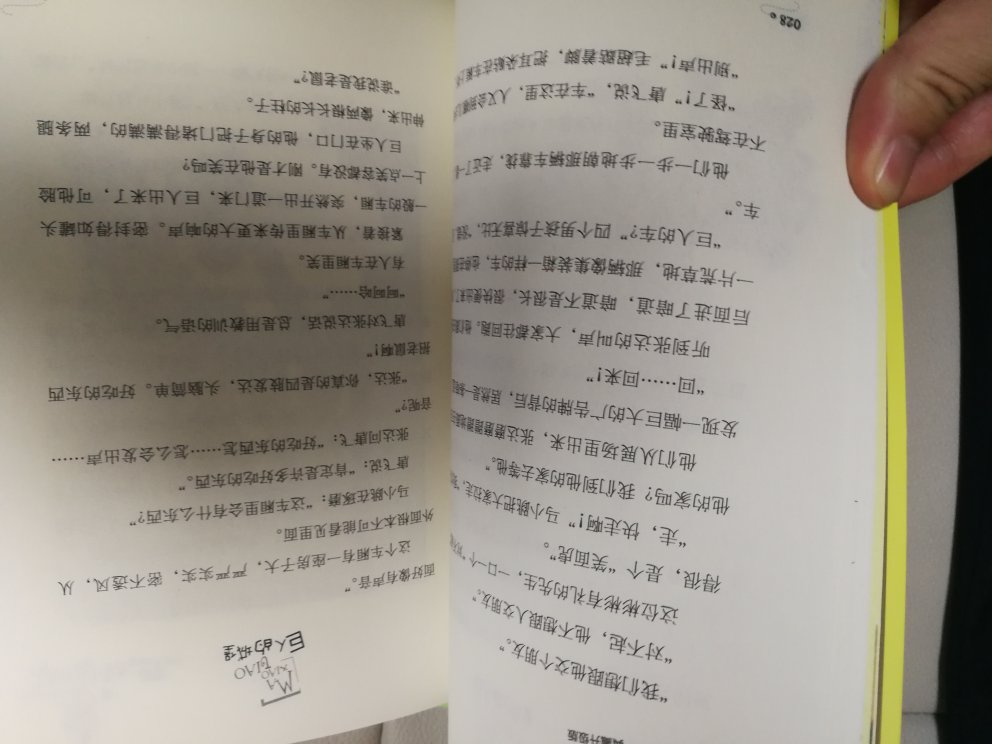 升级版
“我们想跟他交个朋友。”
“对不起，他不想跟人交朋友。”
这位彬彬有礼的先生，一口一个
得很，是个“笑面虎”。
“走，快走啊！”马小跳把大家拉走，
他的家吗？我们到他的家去等他。”
他们从展场里出来，张达磨磨蹭蹭
发现一幅巨大的广告牌的背后，居然是一
“回……回来！”
听到张达的叫声，大家都往回跑。他们
后面进了暗道，暗道不是很长，很快
一片荒草地，那辆像集装箱一样的车，也
“巨人的车？”四个男孩子惊喜无比，
车。”
他们一步一步地朝那辆车靠拢，走近了
不在驾驶室里。
“怪了！”唐飞说，“车在这里，人又会到哪
“别出声！”毛超踮着脚，把耳朵贴在车厢
028
MA
XIAO
TIAO
巨人的城堡
面好像有声音。”
这个车厢有一座房子大，严严实实，密不透风，从
外面根本不可能看见里面。
马小跳在琢磨：“这车厢里会有什么东西？”
唐飞说：“肯定是许多好吃的东西。”
张达问唐飞：“好吃的东西怎……怎么会发出声……
音呢？”
“张达，你真的是四肢发达，头脑简单。好吃的东西
招老鼠啊！”
唐飞对张达说话，总是用教训的语气。
“呵呵哈……”
有人在车厢里笑。
紧接着，从车厢里传来更大的响声。密封得如罐头
一般的车厢，突然开出一道门来，巨人出来了，可他脸
上一点笑容都没有。刚才是他在笑吗？
巨人坐在门口，他的身子把门堵得满满的，两条腿
伸出来，像两根长长的柱子。
“谁说我是老鼠？”